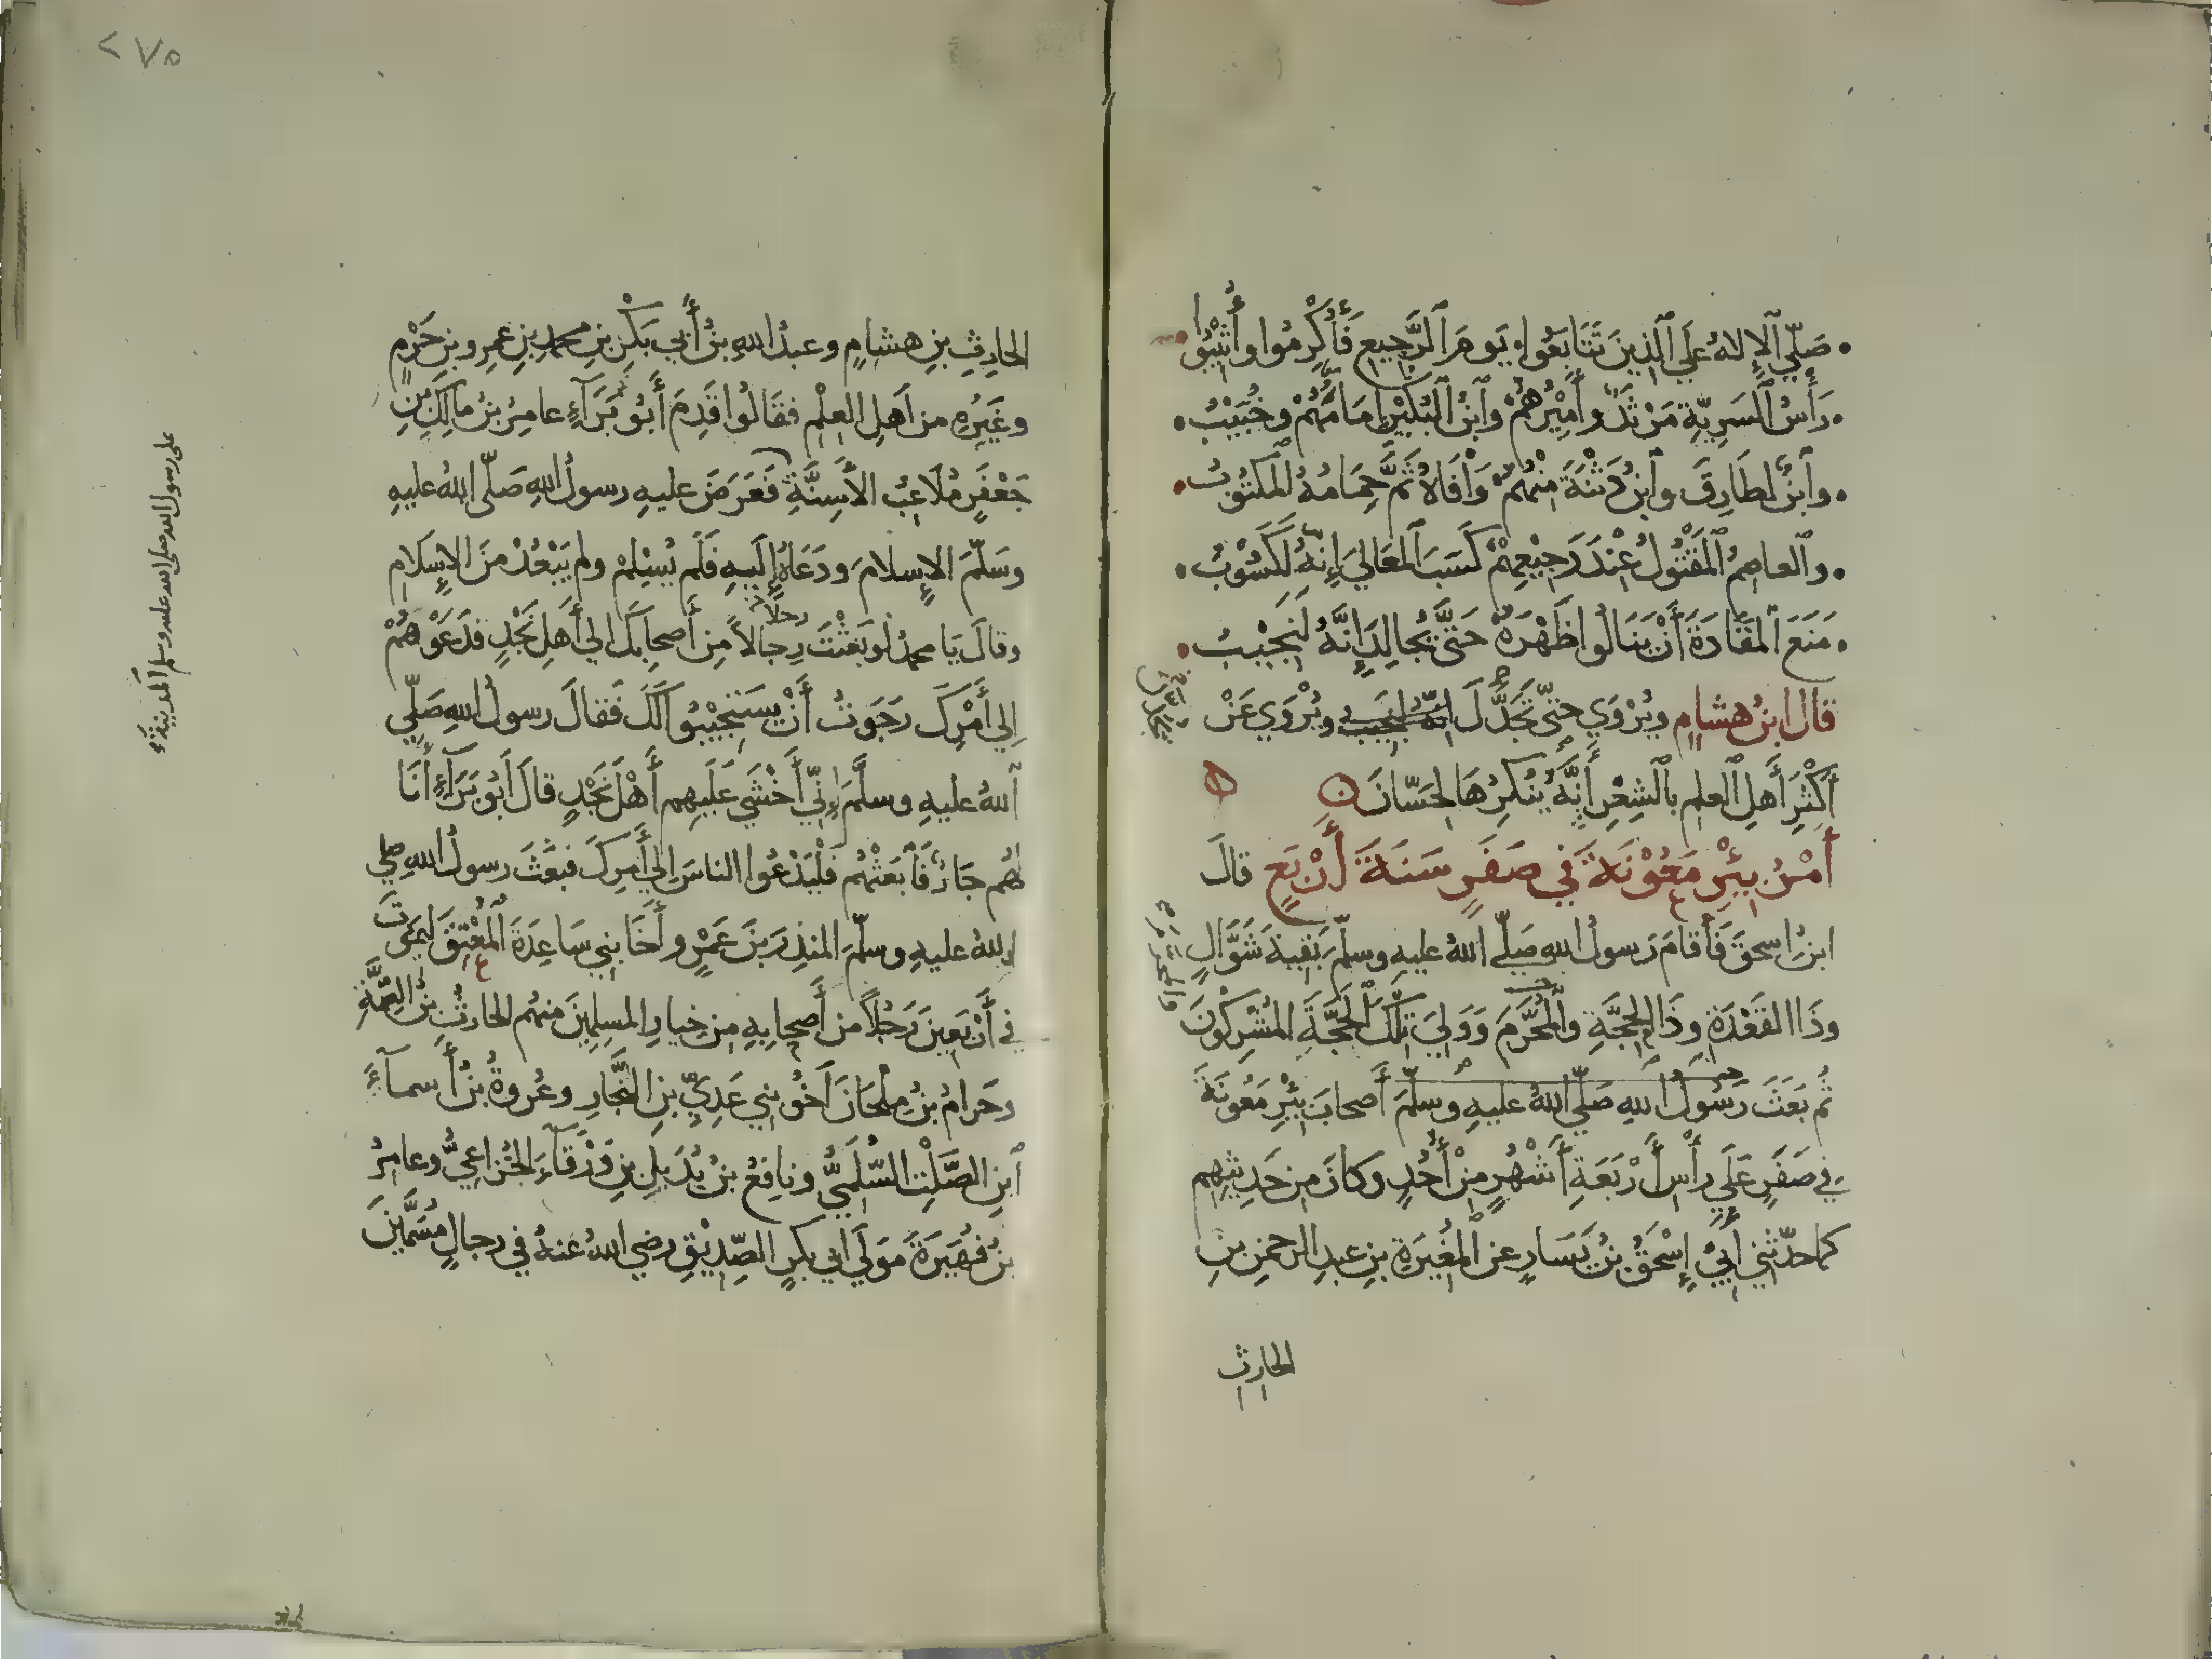 صَلَّى الإِلَهُ عَلَي الَّذِينَ تَتَابَعُوا يَومَ الرَّجِيعِ فَأُكْرِمُوا وأُثِيْبُوا
رَأْسُ السَرِيَّةِ مَرْثَدٌ وأَمِيْرُهُمْ وابْنُ البُكَيْرِ إِمَامُهُمْ وخُبَيْبُ
وابْنٌ لطَارِقَ وابنُ دَثْنَةَ مِنْهُمُ وَافَاهُ ثَمَّ حِمَامُهُ المَكْتُوبُ
والعاصِمُ المَقْتُولُ عِنْدَ رَجِيْعِهِمْ كَسَبَ المَعَالِيَ إِنَّهُ لَكَسُوْبُ
مَنَعَ المَقَادَةَ أَنْ يَنَالُوا ظَهْرَهُ حَتَّى يُجَالِدَ إِنَّهُ لَنَجِيْبُ
قال ابنُ هشامٍ ويُرْوَي حتّى يُجَدَّلَ إنّه لنجيب ويُرْوَي عَنْ
أَكْثَرِ أَهلِ العلمِ بالشِعْرِ أَنَّهُ يُنْكِرُهَا لحَسّانَ
أَمْرُ بِئْرِ مَعُوْنَةَ فِي صَفَرٍ سَنَةَ أَرْبَعٍ قالَ
ابنُ اسحقَ فَأَقامَ رَسولُ اللهِ صَلّى اللهُ عليهِ وسلّمَ بَقِيةَ شَوَّالٍ
وذَا القَعْدَةِ وذَا الحِجَّةِ والمُحَرَّمَ وَوَلِيَ تِلْكَ الحَجَّةَ المُشْرِكُونَ
ثُم بَعَثَ رَسُولُ اللهِ صَلّي اللهُ عليهِ وسلّمَ أَصحابَ بِئْرِ مَعُونَةَ
فِي صَفَرٍ عَلَي رأْسِ أَرْبَعَةِ أَشْهُرٍ مِنْ أُحُدٍ وكانَ مِن حَدِيثِهِم
كما حدّثني أَبِيْ إِسْحَقُ بنُ يَسَارٍ عن المُغِيرَةِ بنِ عبدِ الرحمنِ بنِ
الحارِثِ
٢٧٥
الحارِثِ بنِ هشامٍ وعبدُ اللهِ بنُ أَبي بَكْرِ بنِ محمدِ بنِ عمرِو بنِ حَزْمٍ
وغَيْرُهِ من أَهلِ العِلْمِ فقَالُوا قَدِمَ أَبُو بَرَآءٍ عامِرُ بنُ مالِكِ بنِ
جَعْفَرٍ مُلَاعِبُ الأَسِنَّةِ فَعَرَضَ عليهِ رسولُ اللهِ صَلّى اللهُ عليهِ
وسَلَّمَ الإِسلامَ ودَعَاهُ إِلَيهِ فَلَم يُسْلِمْ ولم يَبْعُدْ مِنَ الإِسلَامِ
وقالَ يَا محمدُ لَو بَعَثْتَ رِجالاً مِن أَصحابِكَ الي أَهلِ نَجْدٍ فدَعَوْهُمْ
رجلا
إِلي أَمْرِكَ رَجَوتُ أَنْ يسَتَجِيْبُوا لَكَ فقالَ رسولُ اللهِ صَلّي
اللهُ عليهِ وسلَّمَ إِنّي أَخْشَي عَلَيهِم أَهْلَ نَجْدٍ قالَ أَبُو بَرَآءٍ أَنَا
لهُم جَارٌ فَابْعَثْهُم فَلْيَدْعُوا الناسَ إِلي أَمْرِكَ فبعَثَ رسولُ الله صلي
اللهُ عليهِ وسلّمَ المنذِرَ بنَ عَمْرٍو أَخَا بني سَاعِدَةَ المُعْنِقَ لِيَمُوتَ
في أَرْبَعِينَ رَجُلاً من أَصحابِهِ مِن خِيارِ المسلِمِينَ منهُم الحارِثُ بنُ الصِّمَّةِ
وحَرامُ بنُ مِلْحَانَ أَخُو بني عَدِيِّ بنِ النَّجّارِ وعُروةُ بنُ أَسمآءَ
ابنِ الصَّلْتِ السُّلَمِيُّ ونافِعُ بنُ بُدَيلِ بنِ وَرْقآءَ الخُزاعِيُّ وعامِرُ
بنُ فُهَيرَةَ مَولَي ابي بكرٍ الصِّدِيْقِ رضي اللهُ عنهُ في رجالٍ مُسَمَّينَ
على رسول الله صلى الله عليه وسلم المدينة